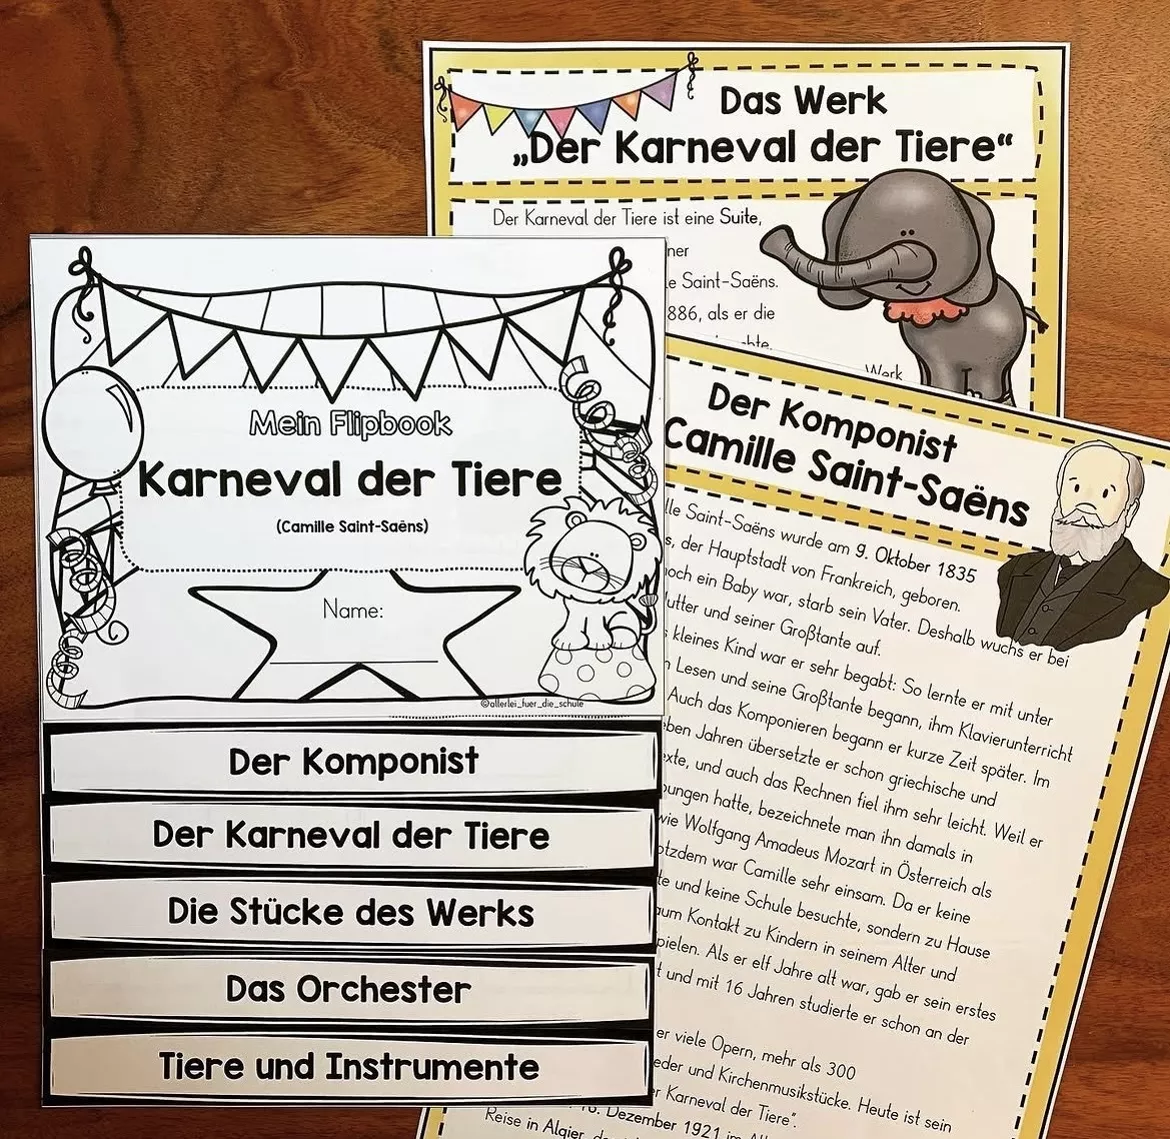 Das Werk
„Der Karneval der Tiere“
Der Karneval der Tiere ist eine Suite,
Saint-Saëns.
als er die
Werk
Mein Flipbook
Karneval der Tiere
(Camille Saint-Saëns)
Name:
©allerlei_fuer_die_schule
Der Komponist
Der Karneval der Tiere
Die Stücke des Werks
Das Orchester
Tiere und Instrumente
Der Komponist
Camille Saint-Saëns
Saint-Saëns wurde am 9. Oktober 1835
der Hauptstadt von Frankreich, geboren.
ein Baby war, starb sein Vater. Deshalb wuchs er bei
und seiner Großtante auf.
kleines Kind war er sehr begabt: So lernte er mit unter
Lesen und seine Großtante begann, ihm Klavierunterricht
Auch das Komponieren begann er kurze Zeit später. Im
Jahren übersetzte er schon griechische und
und auch das Rechnen fiel ihm sehr leicht. Weil er
hatte, bezeichnete man ihn damals in
wie Wolfgang Amadeus Mozart in Österreich als
war Camille sehr einsam. Da er keine
und keine Schule besuchte, sondern zu Hause
Kontakt zu Kindern in seinem Alter und
Als er elf Jahre alt war, gab er sein erstes
und mit 16 Jahren studierte er schon an der
er viele Opern, mehr als 300
und Kirchenmusikstücke. Heute ist sein
Karneval der Tiere“.
Dezember 1921 im
Reise in Algier,